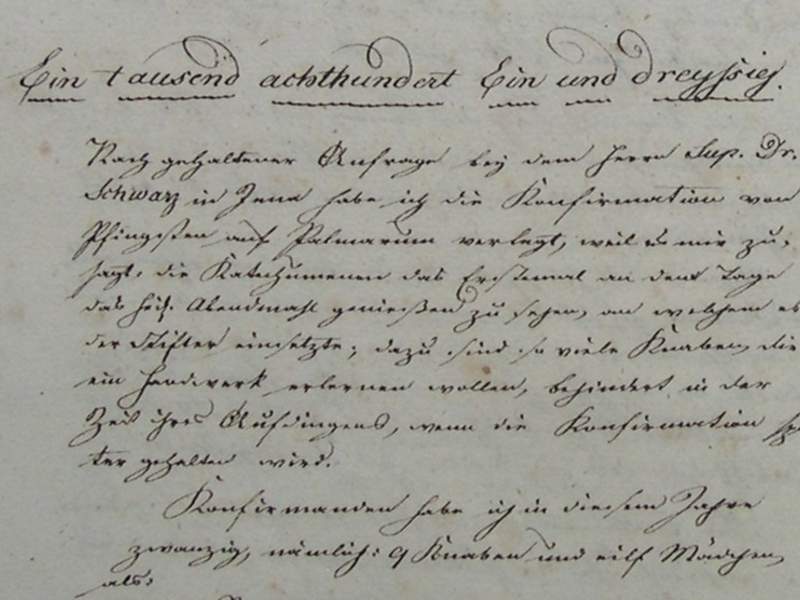 Ein tausend achthundert Ein und dreyssig.
Nach gehaltener Anfrage bey dem Herrn Sup. Dr.
Schwarz in Jena habe ich die Konfirmation von
Pfingsten auf Palmarum verlegt, weil es mir zu-
sagt, die Katechumenen das Erstemal an dem Tage
das heil. Abendmahl genießen zu sehen, an welchem es
der Stifter einsetzte; dazu sind so viele Knaben, die
ein Handwerk erlernen wollen, behindert in der
Zeit ihres Aufdingens, wenn die Konfirmation spä
ter gehalten wird.
Konfirmanden habe ich in diesem Jahre
zwanzig, nämlich: 9 Knaben und eilf Mädchen,
als: